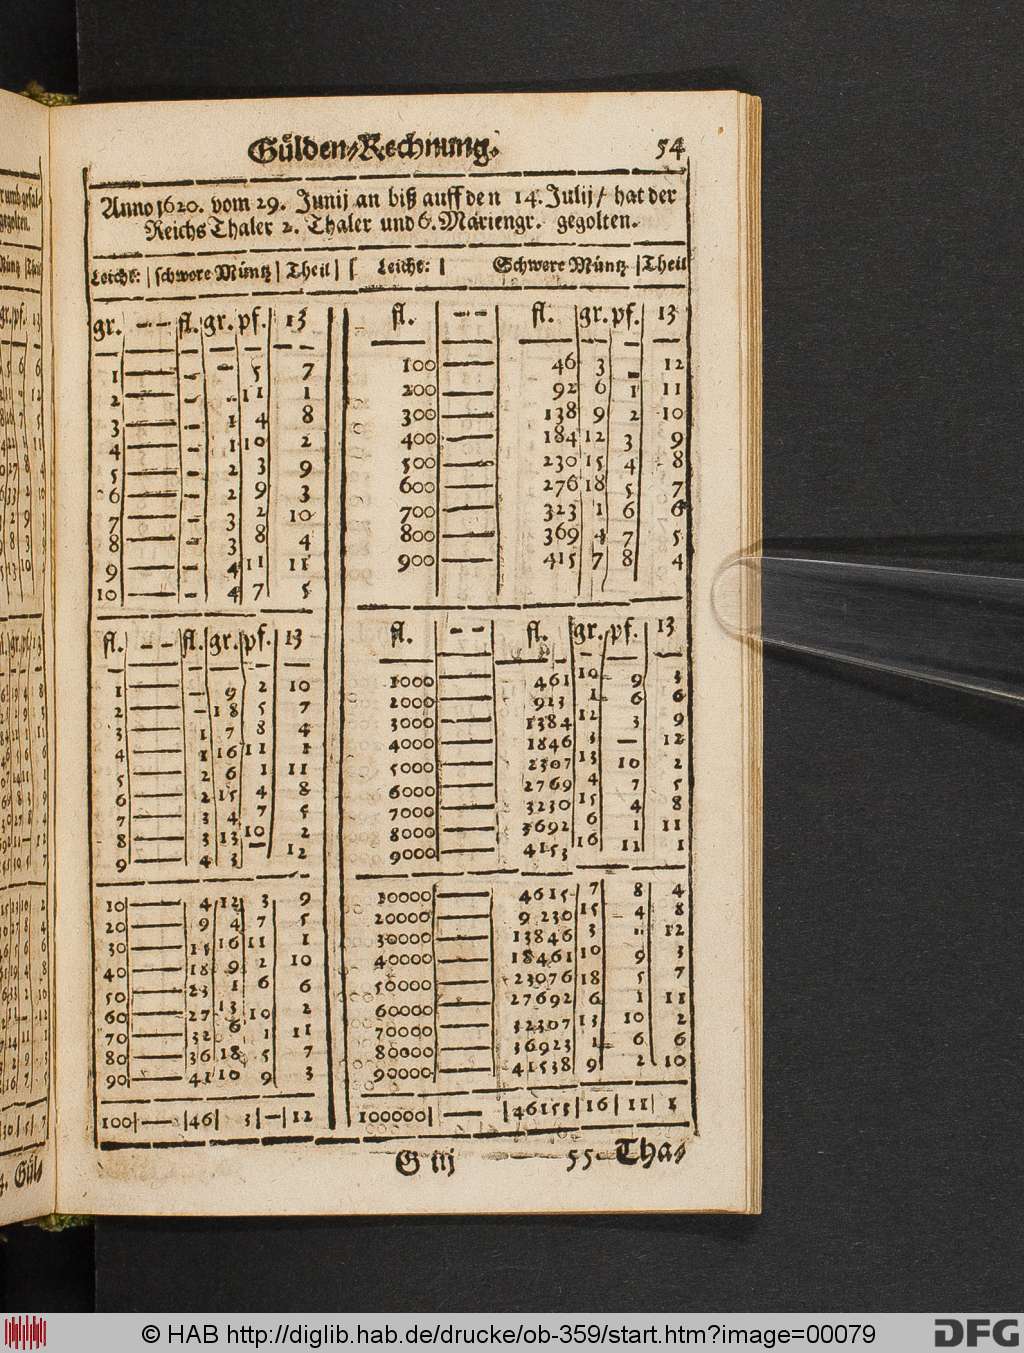 Gülden-Rechnung. 54
Anno 1620. vom 29. Junij an biß auff den 14. Julij / hat der
Reichs Thaler 2. Thaler und 6. Mariengr. gegolten.
Leicht: | schwere Müntz | Theil |
gr. -- fl. gr. pf. 13
1 — - - 5 7
2 — - - 11 1
3 — - 1 4 8
4 — - 1 10 2
5 — - 2 3 9
6 — - 2 9 3
7 — - 3 2 10
8 — - 3 8 4
9 — - 4 11 11
10 — - 4 7 5
fl. -- fl. gr. pf. 13
1 — - 9 2 10
2 — - 18 5 7
3 — 1 7 8 4
4 — 1 16 11 1
5 — 2 6 1 11
6 — 2 15 4 8
7 — 3 4 7 5
8 — 3 13 10 2
9 — 4 3 — 12
10 — 4 12 3 9
20 — 9 4 7 5
30 — 15 16 11 1
40 — 18 9 2 10
50 — 23 1 6 6
60 — 27 13 10 2
70 — 32 6 1 11
80 — 36 18 5 7
90 — 41 10 9 3
100 — 46 3 — 12
Leicht: | Schwere Müntz | Theil
fl. -- fl. gr. pf. 13
100 — 46 3 - 12
200 — 92 6 1 11
300 — 138 9 2 10
400 — 184 12 3 9
500 — 230 15 4 8
600 — 276 18 5 7
700 — 323 1 6 6
800 — 369 4 7 5
900 — 415 7 8 4
fl. -- fl. gr. pf. 13
1000 — 461 10 9 3
2000 — 923 1 6 6
3000 — 1384 12 3 9
4000 — 1846 3 — 12
5000 — 2307 13 10 2
6000 — 2769 4 7 5
7000 — 3230 15 4 8
8000 — 3692 6 1 11
9000 — 4153 16 11 1
10000 — 4615 7 8 4
20000 — 9230 15 4 8
30000 — 13846 3 - 12
40000 — 18461 10 9 3
50000 — 23076 18 5 7
60000 — 27692 6 1 11
70000 — 32307 13 10 2
80000 — 36923 1 6 6
90000 — 41538 9 2 10
100000 — 46153 16 11 1
G iij 55 Tha-
© HAB http://diglib.hab.de/drucke/ob-359/start.htm?image=00079
DFG